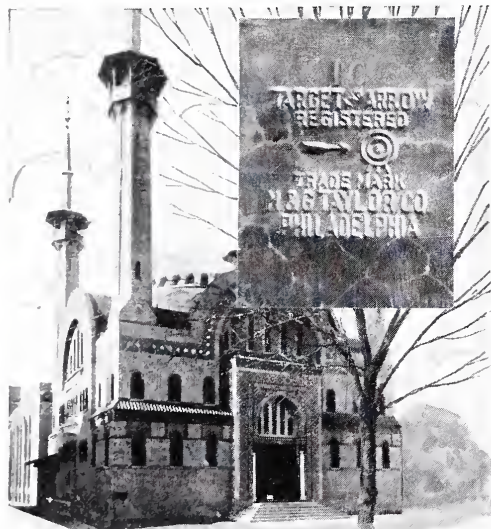 IC
TARGET AND ARROW
REGISTERED
TRADE MARK
N & G TAYLOR CO.
PHILADELPHIA